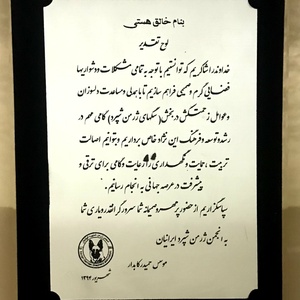 بنام خالق هستی
لوح تقدیر
خداوند را شاکریم که توانستیم با توجه به تمامی مشکلات و دشواریها
فضایی گرم و صمیمی فراهم سازیم تا با همدلی و مساعدت دلسوزان
و عوامل زحمتکش در بخش (سگهای ژرمن شپرد) گامی مهم در
رشد و توسعه و فرهنگ این نژاد خاص برداریم و بتوانیم اصالت
تربیت ، حمایت و نگهداری را رعایت و گامی برای ترقی و
پیشرفت در عرصه جهانی به انجام رسانیم.
سپاسگزاریم از حضور پر مهر و صمیمانه شما سرور گرانقدر و یاری شما
به انجمن ژرمن شپرد ایرانیان
موسس حمیدرکابدار
شهریور ۱۳۹۲